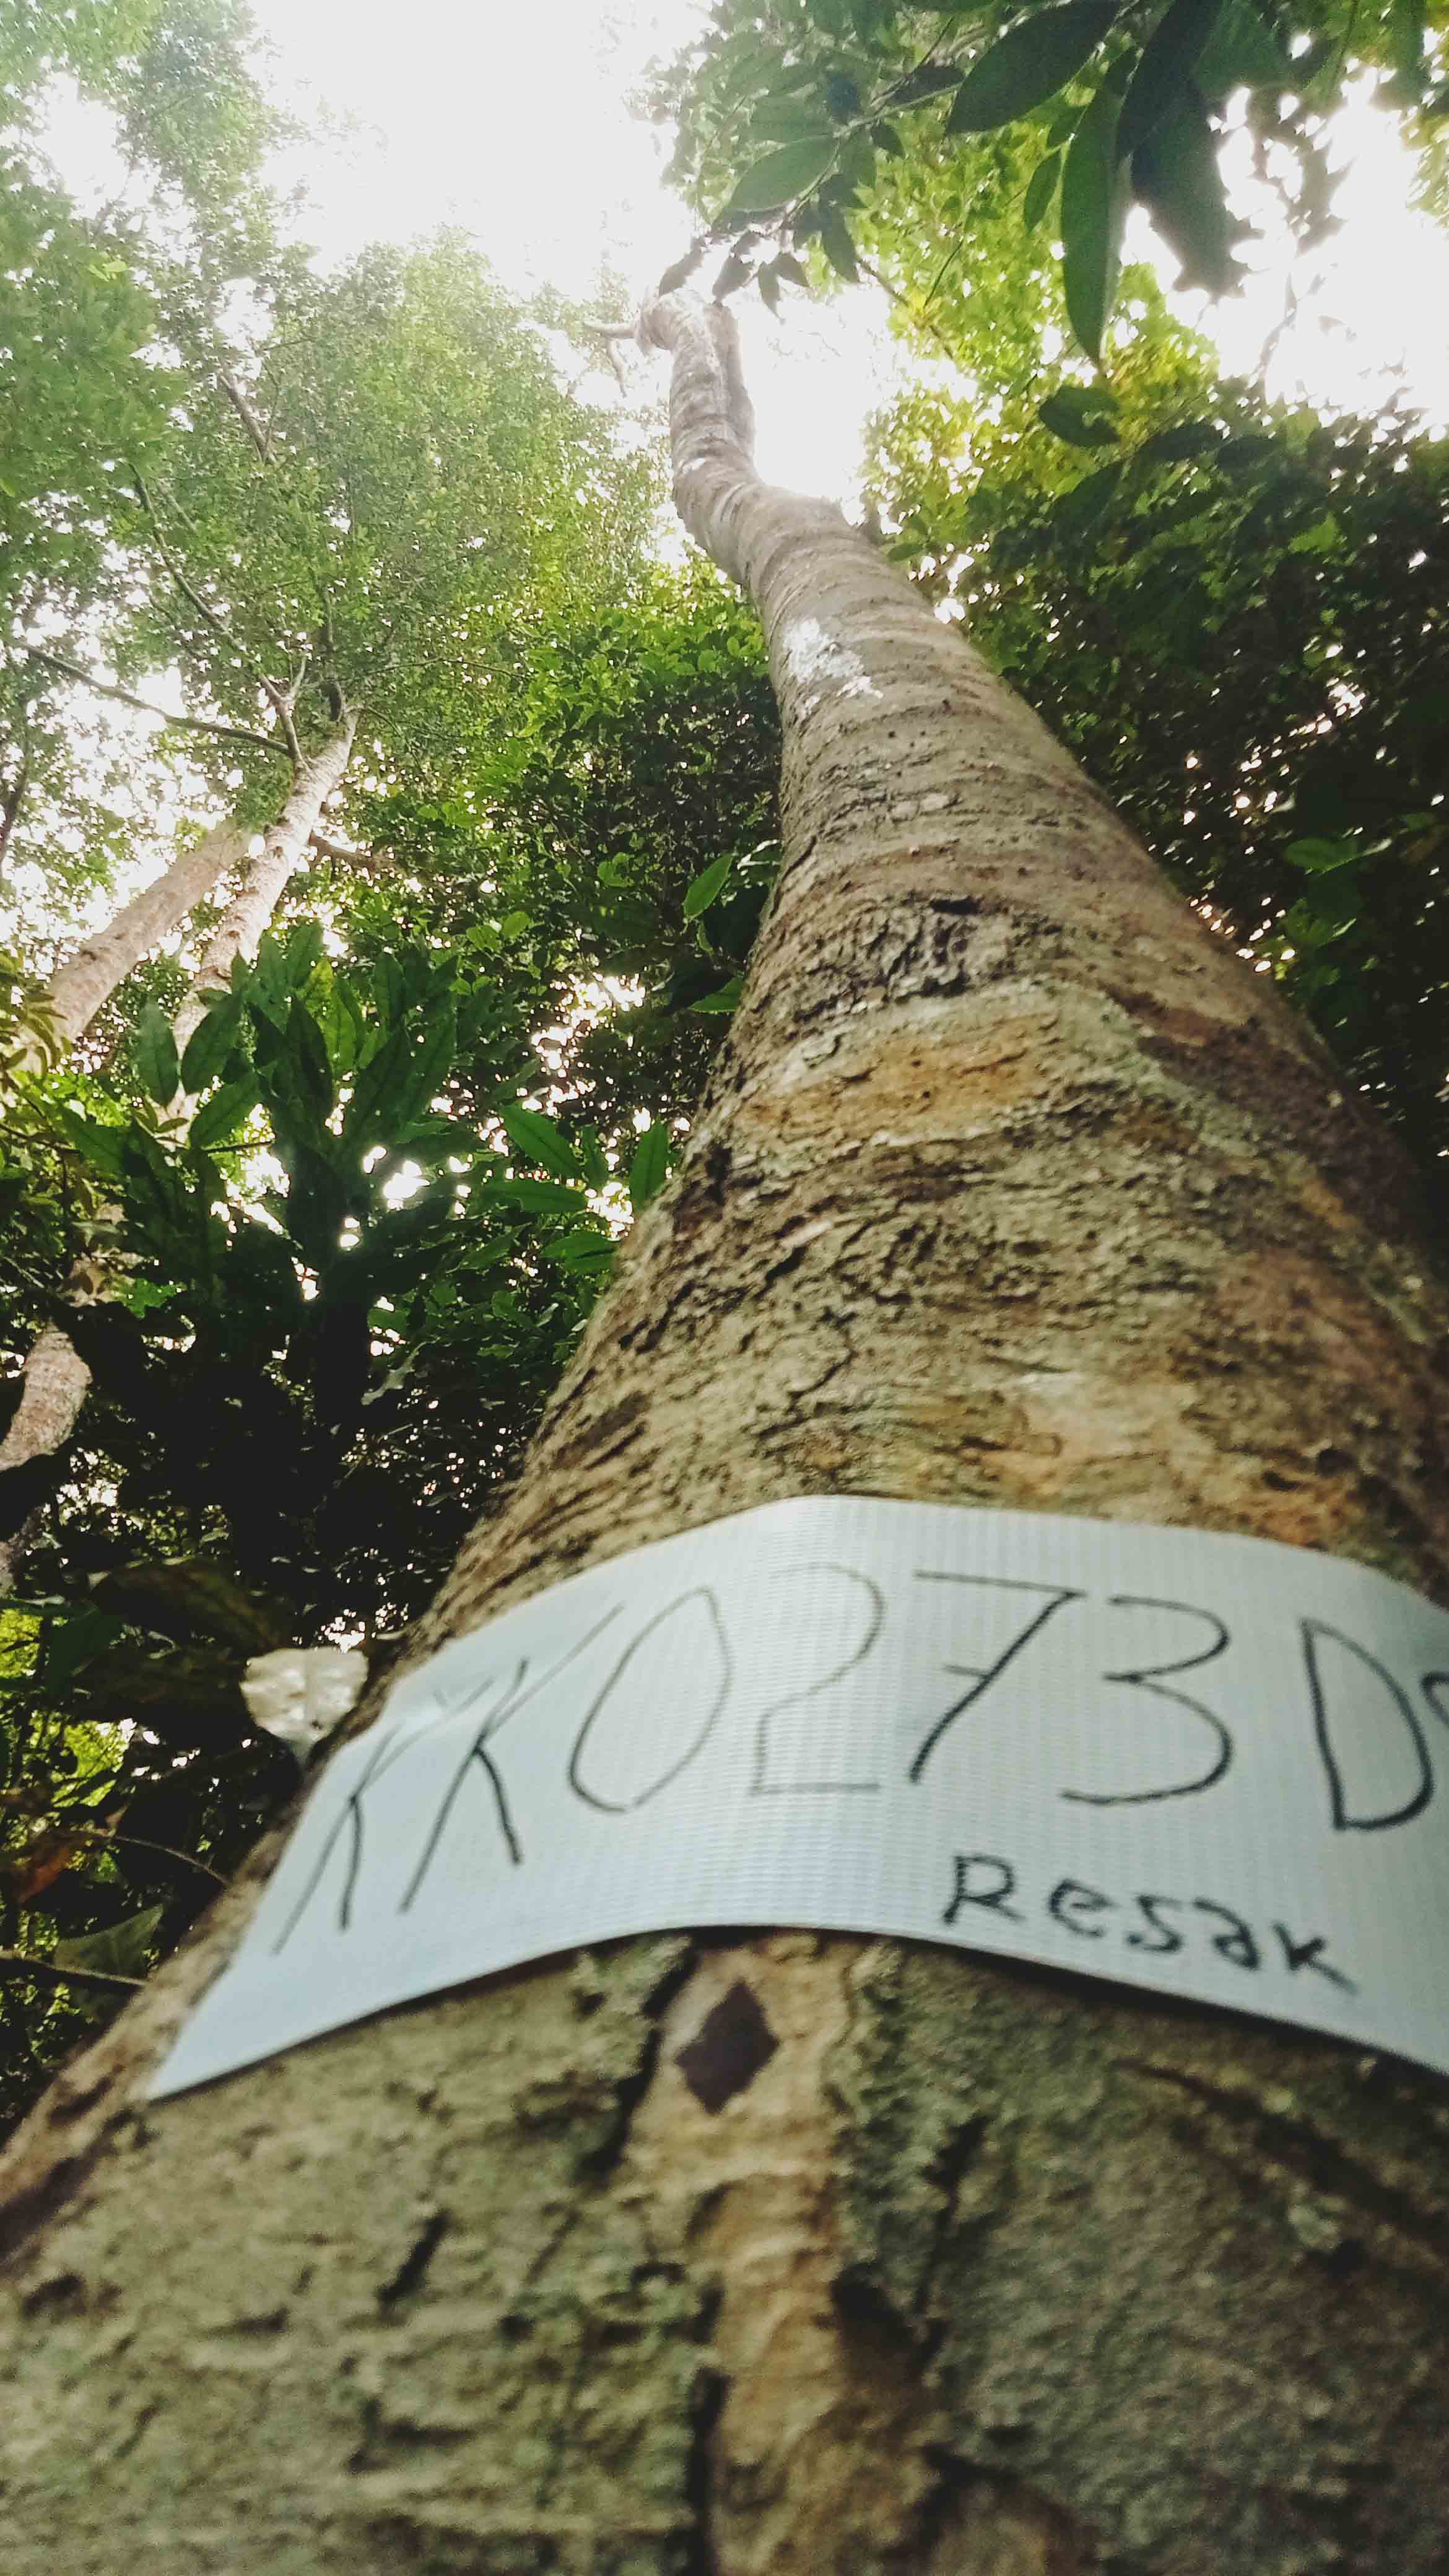 KK0273D
Resak